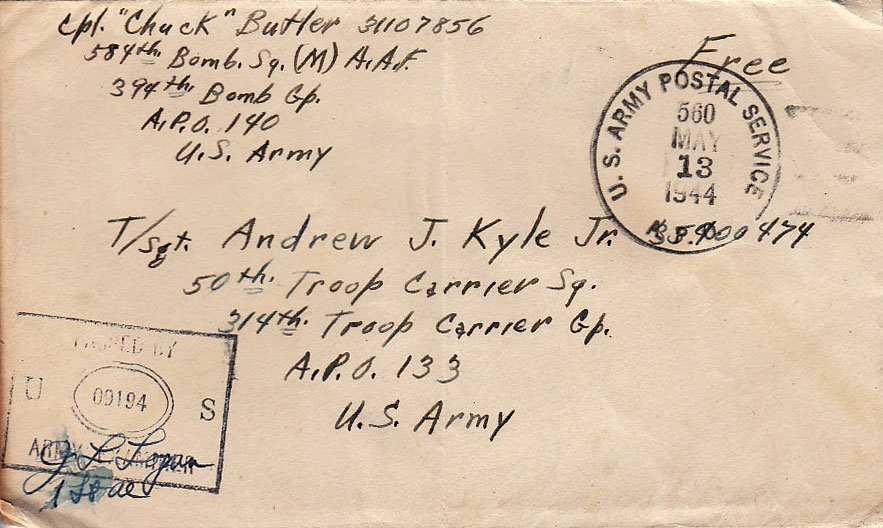 Cpl. "Chuck" Butler 31107856
584th. Bomb. Sq. (M) A.A.F.
394th. Bomb Gp.
A.P.O. 140
U.S. Army
Free
U. S. ARMY POSTAL SERVICE
560
MAY
13
1944
T/Sgt. Andrew J. Kyle Jr.
50th. Troop Carrier Sq.
314th. Troop Carrier Gp.
A.P.O. 133
U.S. Army
PASSED BY
U 09194 S
ARMY EXAMINER